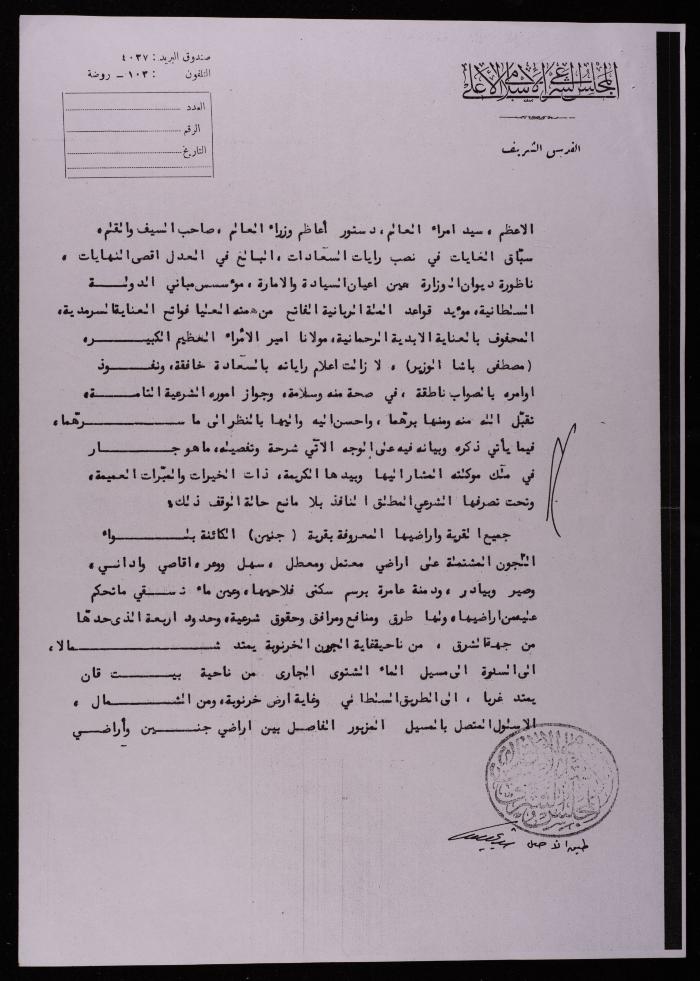 المجلس الشرعي الإسلامي الأعلى
القدس الشريف
صندوق البريد : ٤٠٣٧
التلفون : ١٠٣ - روضة
العدد
الرقم
التاريخ
الاعظم ، سيد امراء العالم ، دستور أعاظم وزراء العالم ، صاحب السيف والقلم ،
سبّاق الغايات في نصب رايات السعادات ، البالغ في العدل اقصى النهايات ،
ناظورة ديوان الوزارة عين اعيان السيادة والامارة ، مؤسس مباني الدولة
السلطانية ، مؤيد قواعد الملة الربانية الفاتح من همته العليا فواتح العناية السرمدية ،
المحفوف بالعناية الابدية الرحمانية ، مولانا امير الأمراء العظيم الكبير
( مصطفى باشا الوزير ) ، لا زالت اعلام راياته بالسعادة خافقة ، ونفوذ
اوامره بالصواب ناطقة ، في صحة منه وسلامة ، وجواز اموره الشرعية التامة ،
تقبّل الله منه ومنها برّهما ، واحسن اليه واليها بالنظر الى ما سرّهما ،
فيما يأتي ذكره وبيانه فيه على الوجه الآتي شرحة وتفصيله ، ما هو جار
في ملك موكلته المشار اليها وبيدها الكريمة ، ذات الخيرات والمبّرات العميمة ،
وتحت تصرفها الشرعي المطلق النافذ بلا مانع حالة الوقف ذلك :
جميع القرية واراضيها المعروفة بقرية ( جنين ) الكائنة بلواء
اللجون المشتملة على اراضي معتمل ومعطل ، سهل ووعر ، اقاصي واداني ،
وصير وبيادر ، ودمنة عامرة برسم سكنى فلاحيها ، وعين ماء تسقي ما تحكم
عليه من اراضيها ، ولها طرق ومنافع ومرافق وحقوق شرعية ، وحدود اربعة الذى حدها
من جهة الشرق ، من ناحية غاية الجرن الخرنوبة يمتد شمالا ،
الى السلوة الى مسيل الماء الشتوى الجارى من ناحية بيت قان
يمتد غربا ، الى الطريق السلطاني وغاية ارض خرنوبة ، ومن الشمال ،
المتصل بالمسيل المزبور الفاصل بين اراضي جنين وأراضي
طبق الأصل